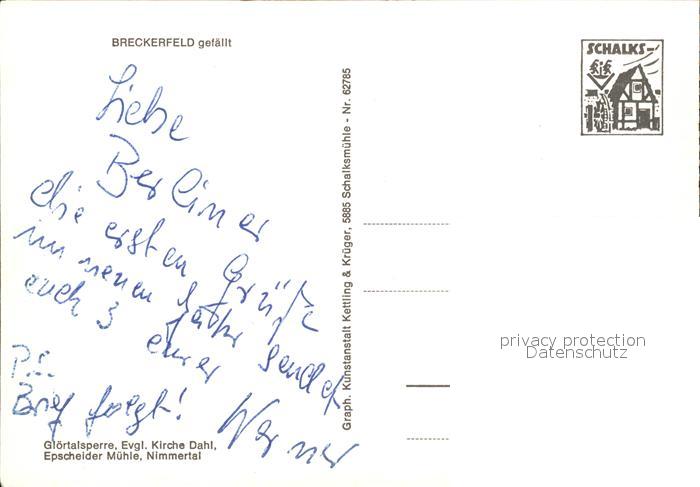 BRECKERFELD gefällt
Liebe
Berliner
die ersten Grüße
im neuen Jahr sendet
euch 3 euer
Werner
P.S.
Brief folgt!
Glörtalsperre, Evgl. Kirche Dahl,
Epscheider Mühle, Nimmertal
Graph. Kunstanstalt Kettling & Krüger, 5885 Schalksmühle - Nr. 62785
SCHALKS-
privacy protection
Datenschutz